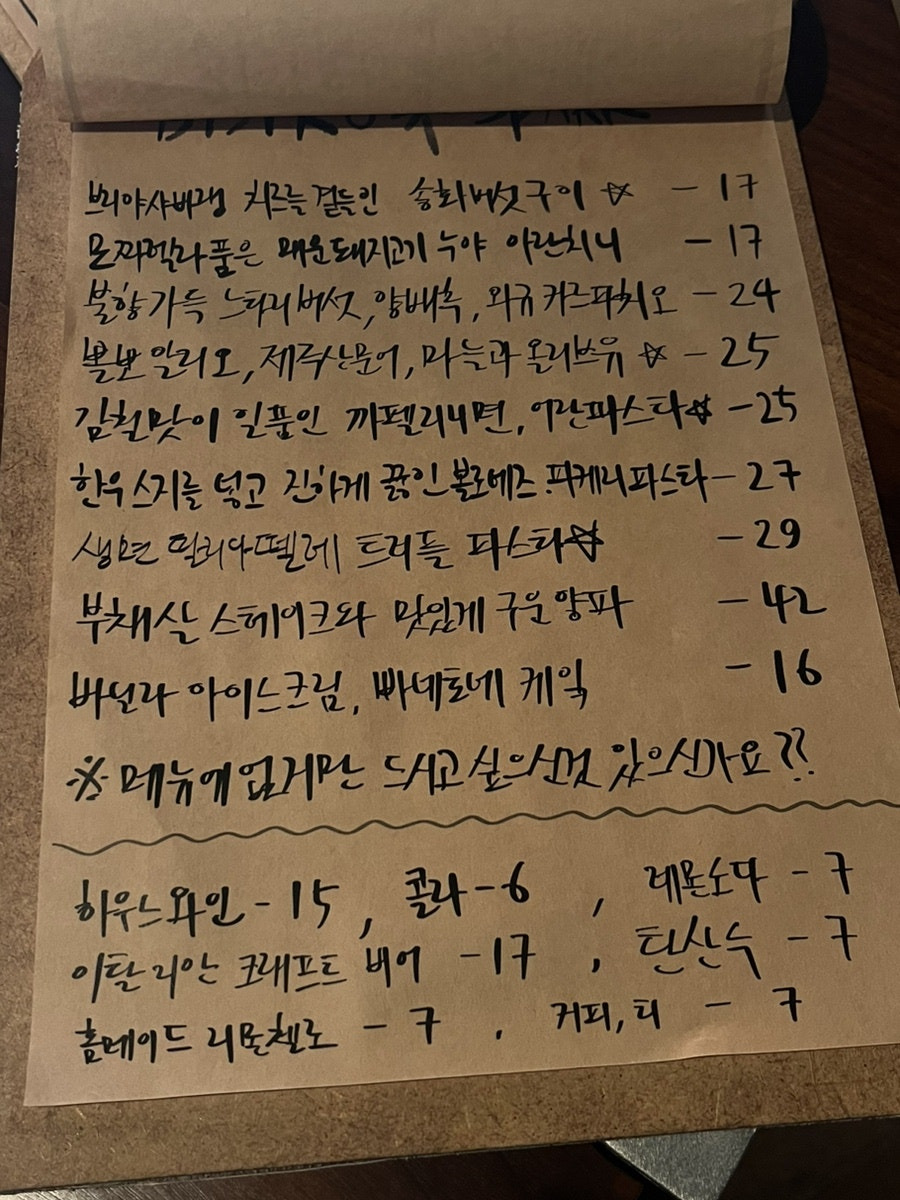 브리야샤바랭 치즈를 곁들인 송화버섯구이 ☆ - 17
모짜렐라 품은 매운돼지고기 누야 아란치니 - 17
불향가득 느타리버섯, 양배추, 와규 카르파치오 - 24
뽈뽀 알리오, 제주산문어, 마늘과 올리브유 ☆ - 25
감칠맛이 일품인 까펠리니면, 어란파스타☆ - 25
한우 스지를 넣고 진하게 끓인 볼로네즈 파케니파스타 - 27
생면 딸리아뗄레 트러플 파스타☆ - 29
부채살 스테이크와 맛있게 구운양파 - 42
바닐라 아이스크림, 빠네토네 케익 - 16
※ 메뉴에 없지만 드시고싶으신것 있으신가요??
하우스와인 - 15 , 콜라 - 6 , 레몬소다 - 7
이탈리안 크래프트 비어 - 17 , 탄산수 - 7
홈메이드 리몬첼로 - 7 , 커피, 티 - 7